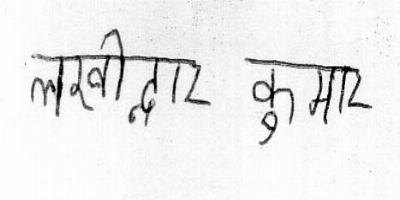 लखीन्द्रार कुमार